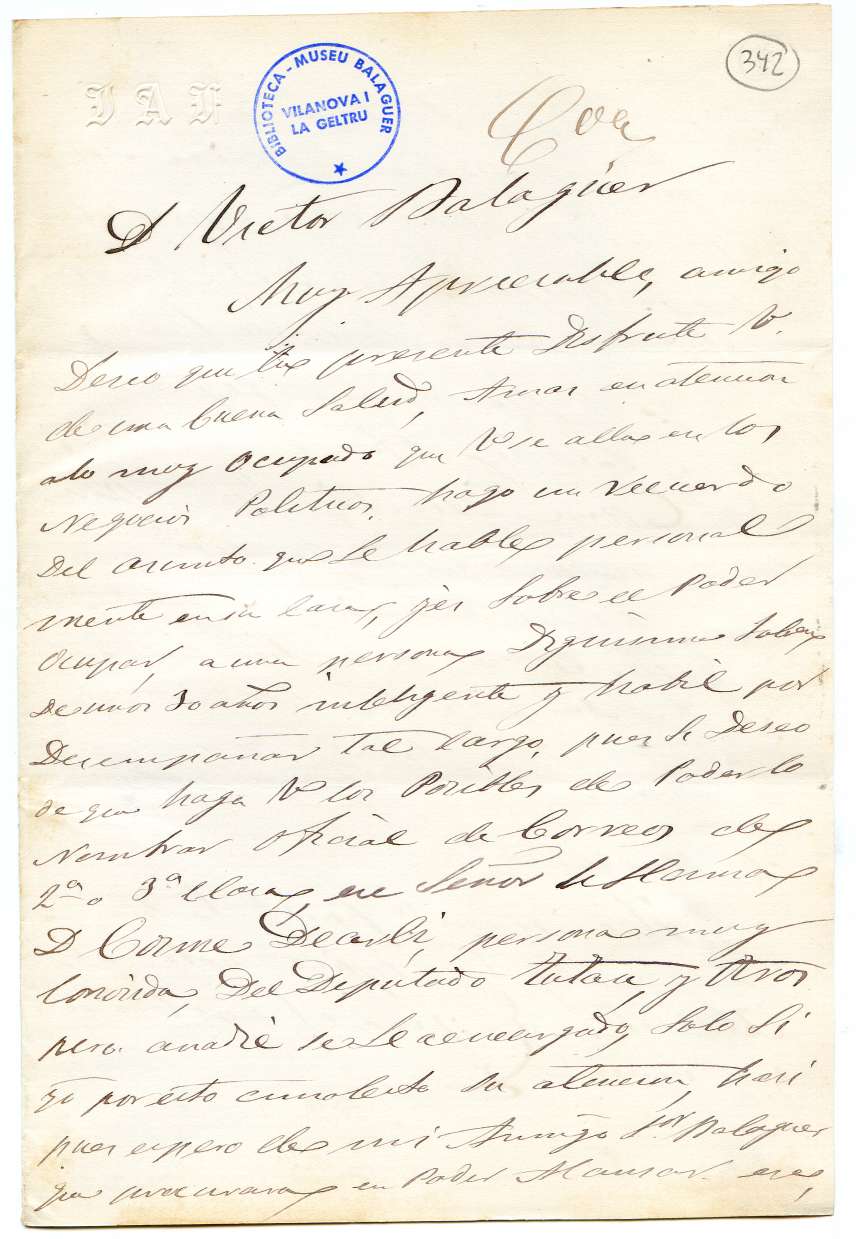 342
JAF
BIBLIOTECA - MUSEU BALAGUER
VILANOVA I
LA GELTRU
D Victor Balaguer
Muy Apreciable, amigo
Deseo que la presente Disfrute V.
de una buena Salud, Amas en atencion
alo muy Ocupado que V se alla en los
Negocios Politicos. hago un recuerdo
Del asunto que le hable personal
mente en su Casa, y es Sobre el Poder
Ocupar, a una persona Dignisima
De unos 30 años inteligente y habil por
Desempañar tal Cargo, pues si Deseo
de que haga V los Posibles de Poderlo
Nombrar Oficial de Correos de
2ª o 3ª Clase, el Señor se llama
D Cosme Decarli, persona muy
Conocida, Del Deputado Tutau y Otros
pero anadie se le a encargado, Solo Si
yo por esto su atencion, hasi
pues espero de mi Amigo Sor Balaguer
que procurara en Poder ese,